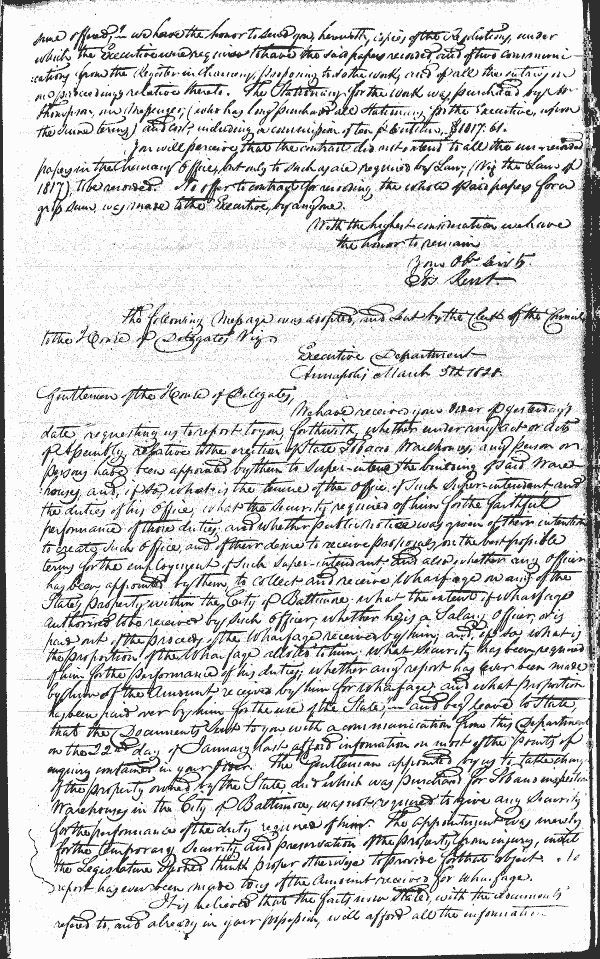 same offices," we have the honor to send you, herewith, copies of the resolutions, under
which, the Executive were required to have the said papers recorded, and of two communi-
cations from the Register in Chancery, proposing to do the work, and of all the entries in
our proceedings relative thereto. The Stationary for the work was purchased by Mr
Thompson, our Messenger, (who has long purchased all Stationary for the Executive, upon
the same terms) and cost, including a commission of ten p Centum, $1817.61.
You will perceive that the contract did not extend to all the un-recorded
papers in the Chancery Office, but only to such as are required by Law, (Viz the Law of
1817) to be recorded. No offer to contract for recording the whole of said papers for a
grip sum, was made to the Executive, by any one.
With the highest consideration we have
the honor to remain
Your Obt. Servts.
Jos Kent.
The following Message was adopted, and sent by the Clerk of the Council
to the House of Delegates Viz
Executive Department
Annapolis March 5th 1828
Gentlemen of the House of Delegates,
We have received your Order of yesterday's
date, requesting us to report to you forthwith, whether under any act or acts
of Assembly, relative to the erection of State Tobacco Warehouses, any person or
persons have been appointed by them to Super-intend the building of said Ware-
houses, and, if so, what is the tenure of the Office of such Super-intendent and
the duties of his Office, what the Security required of him for the faithful
performance of those duties, and whether public notice was given of their intention
to create such Office, and of their desire to receive proposals, on the best possible
terms for the employment of such Super-intendant and also whether any Officer
has been appointed by them, to collect and receive Wharfage on any of the
State's property within the City of Baltimore, what the extent of wharfage
authorised to be received by such Officer, whether he is a Salary Officer, or is
paid out of the proceeds of the Wharfage received by him; and, if so, what is
the proportion of the Wharfage allotted to him, what security has been required
of him for the performance of his duties; whether any report has ever been made
by him of the Amount received by him for Wharfage, and what proportion
has been paid over by him for the use of the State," and beg leave to State,
that the Documents sent to you with a communication from this Department
on the 22nd day of January last afford information on most of the points of
enquiry contained in your Order. The Gentleman appointed by us to take charge
of the property owned by the State and which was purchased for Tobacco inspection
Warehouses in the City of Baltimore, was not required to give any Security
for the performance of the duty required of him. The appointment was merely
for the temporary Security and preservation of the property from injury, until
the Legislature should think proper otherwise to provide for that object. No
report has ever been made to us of the Amount received for Wharfage.
It is believed that the facts now Stated, with the documents
refered to, and already in your possession, will afford all the information